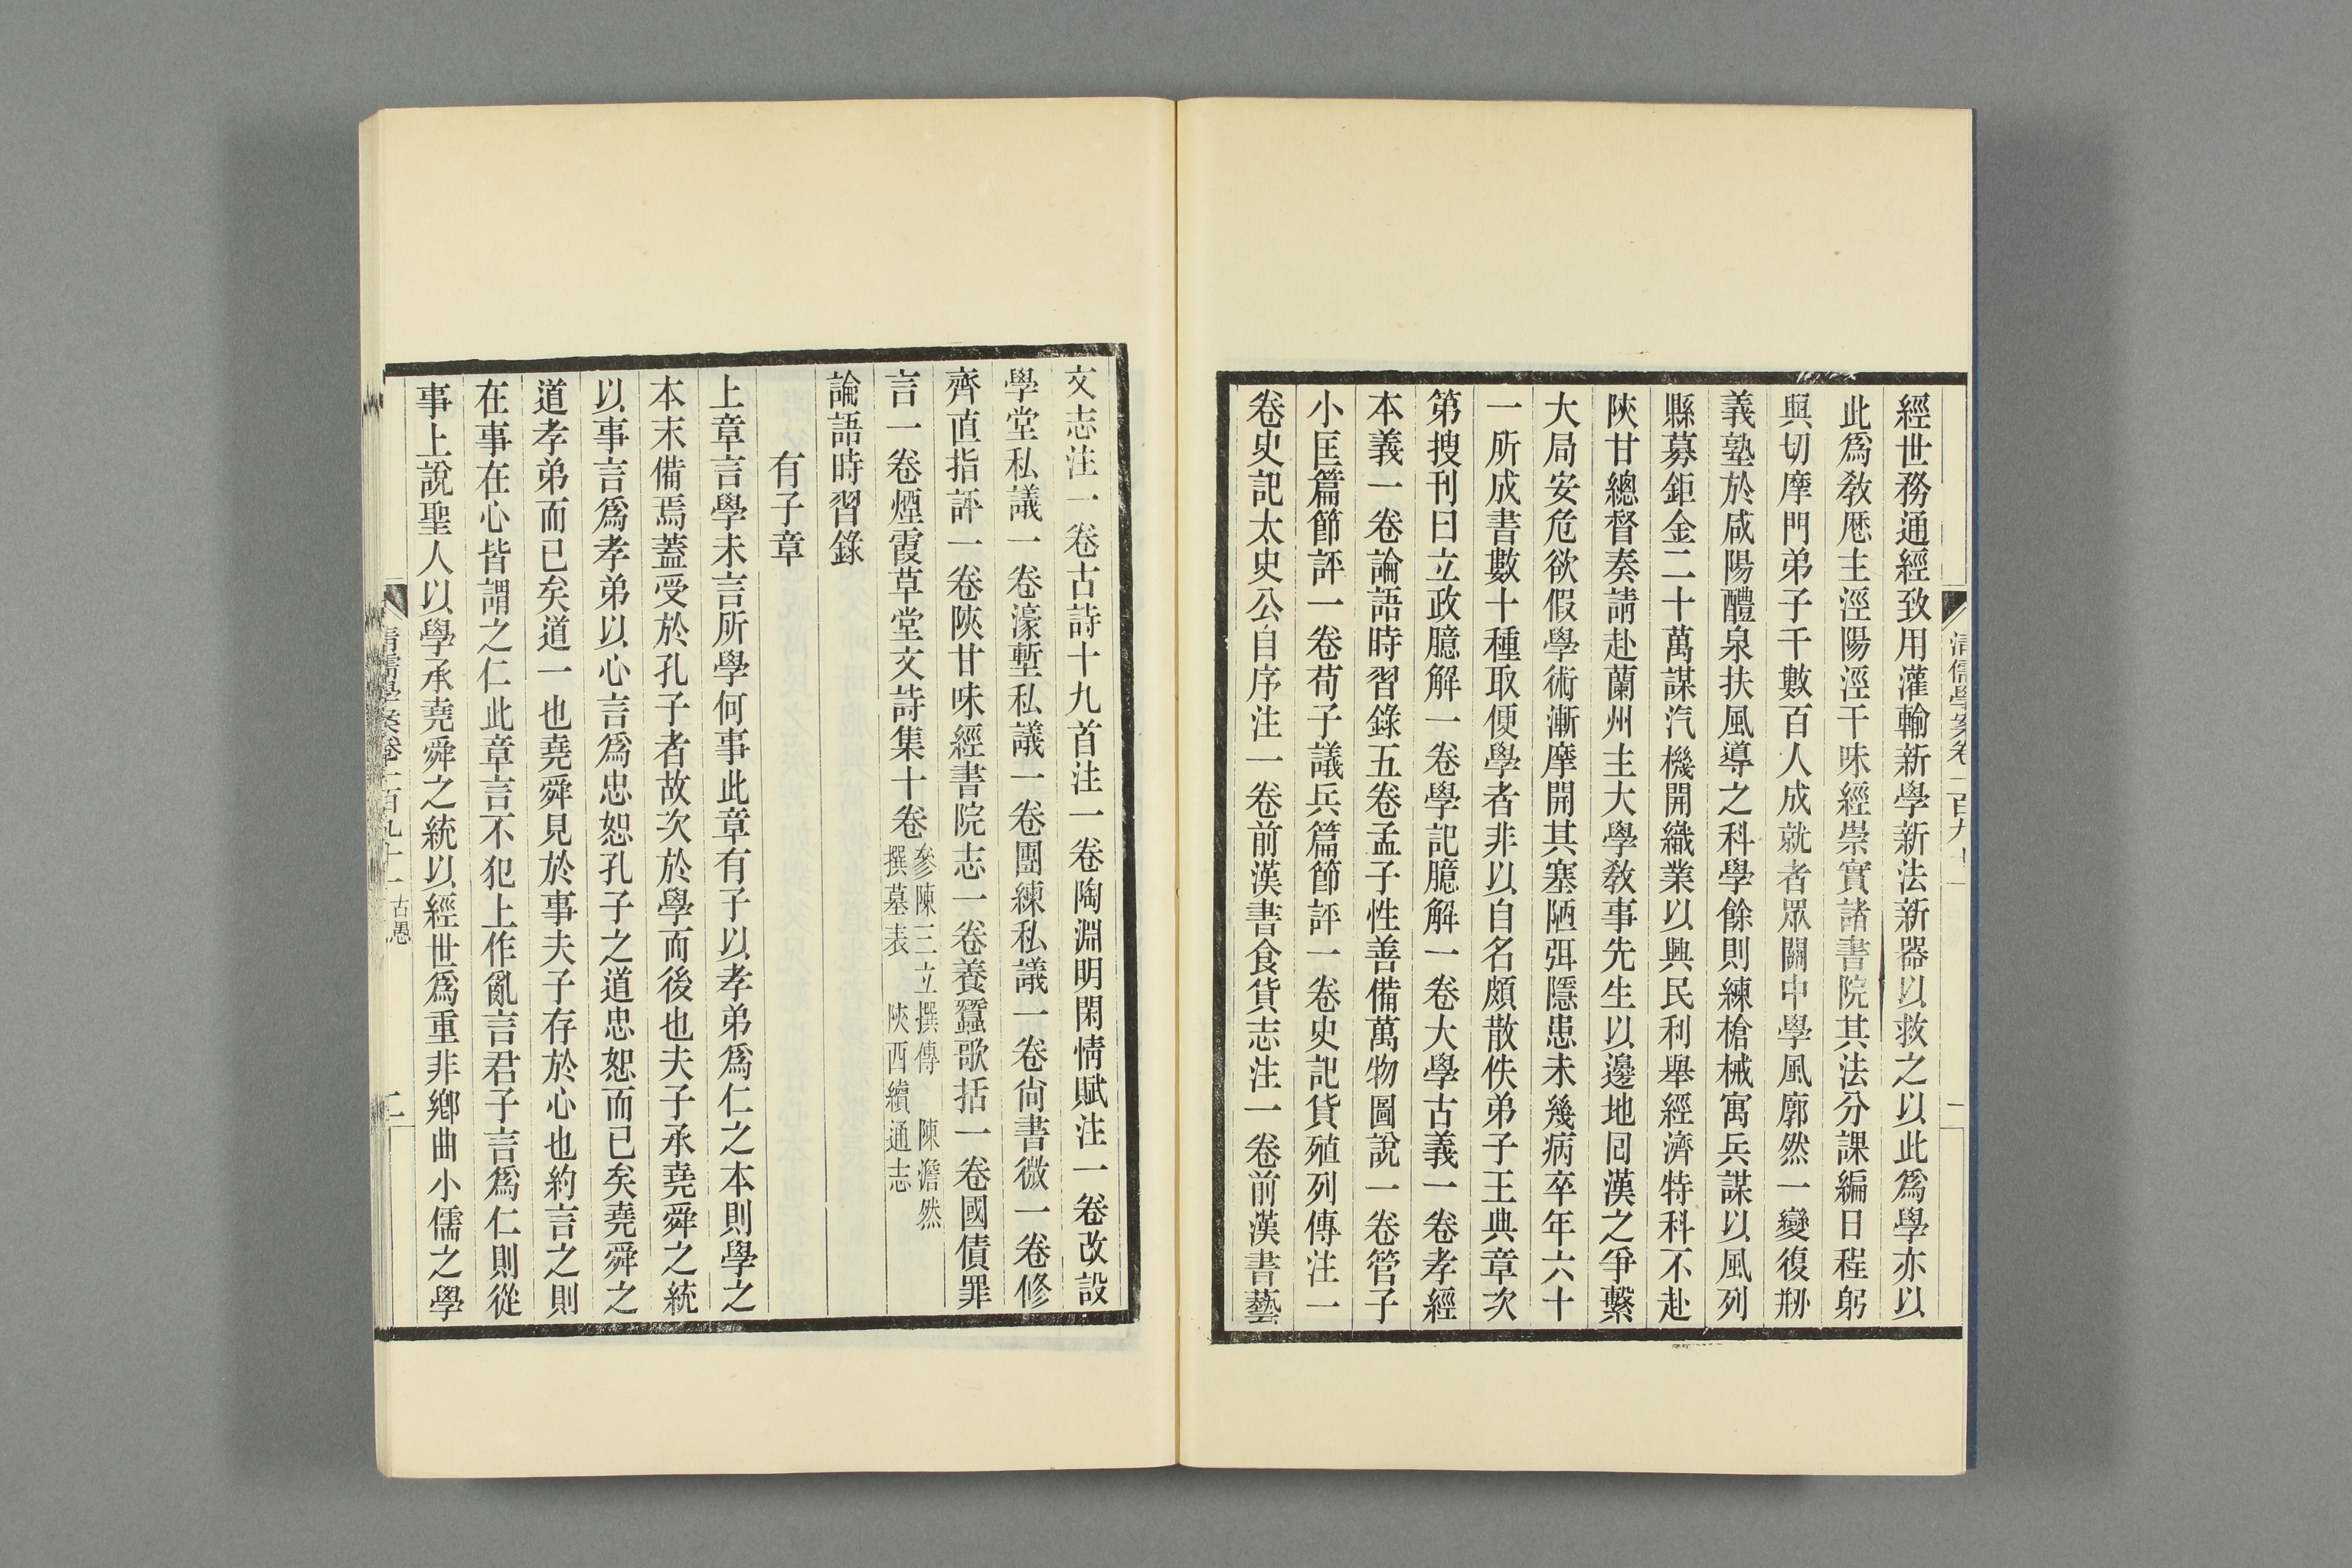 經世務通經致用灌輸新學新法新器以救之以此爲學亦以
此爲教歷主涇陽涇干味經崇實諸書院其法分課編日程躬
與切摩門弟子千數百人成就者眾關中學風廓然一變復刱
義塾於咸陽醴泉扶風導之科學餘則練槍械寓兵謀以風列
縣募鉅金二十萬謀汽機開織業以興民利舉經濟特科不赴
陝甘總督奏請赴蘭州主大學教事先生以邊地回漢之爭繫
大局安危欲假學術漸摩開其塞陋弭隱患未幾病卒年六十
一所成書數十種取便學者非以自名頗散佚弟子王典章次
第搜刊曰立政臆解一卷學記臆解一卷大學古義一卷孝經
本義一卷論語時習錄五卷孟子性善備萬物圖說一卷管子
小匡篇節評一卷荀子議兵篇節評一卷史記貨殖列傳注一
卷史記太史公自序注一卷前漢書食貨志注一卷前漢書藝
清儒學案卷一百九十一
文志注一卷古詩十九首注一卷陶淵明閑情賦注一卷改設
學堂私議一卷濠塹私議一卷團練私議一卷尙書微一卷修
齊直指評一卷陝甘味經書院志一卷養蠶歌括一卷國債罪
言一卷煙霞草堂文詩集十卷
參陳三立撰傳 陳澹然
撰墓表 陝西續通志
論語時習錄
有子章
上章言學未言所學何事此章有子以孝弟爲仁之本則學之
本末備焉蓋受於孔子者故次於學而後也夫子承堯舜之統
以事言爲孝弟以心言爲忠恕孔子之道忠恕而已矣堯舜之
道孝弟而已矣道一也堯舜見於事夫子存於心也約言之則
在事在心皆謂之仁此章言不犯上作亂言君子言爲仁則從
事上說聖人以學承堯舜之統以經世爲重非鄉曲小儒之學
清儒學案卷一百九十一 古愚
二